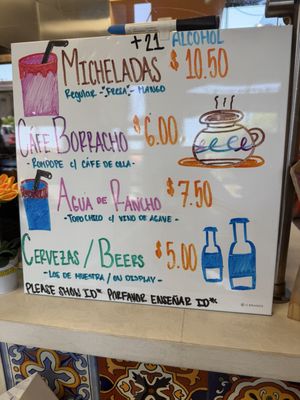 +21 ALCOHOL
MICHELADAS $10.50
REGULAR - "FRESA" - MANGO
CAFE BORRACHO $6.00
- ROMPOPE C/ CAFE DE OLLA -
AGUA DE RANCHO $7.50
- TOPO CHICO C/ VINO DE AGAVE -
CERVEZAS / BEERS $5.00
- LOS DE MUESTRA / ON DISPLAY -
PLEASE SHOW ID* PORFAVOR ENSEÑAR ID*
U BRANDS